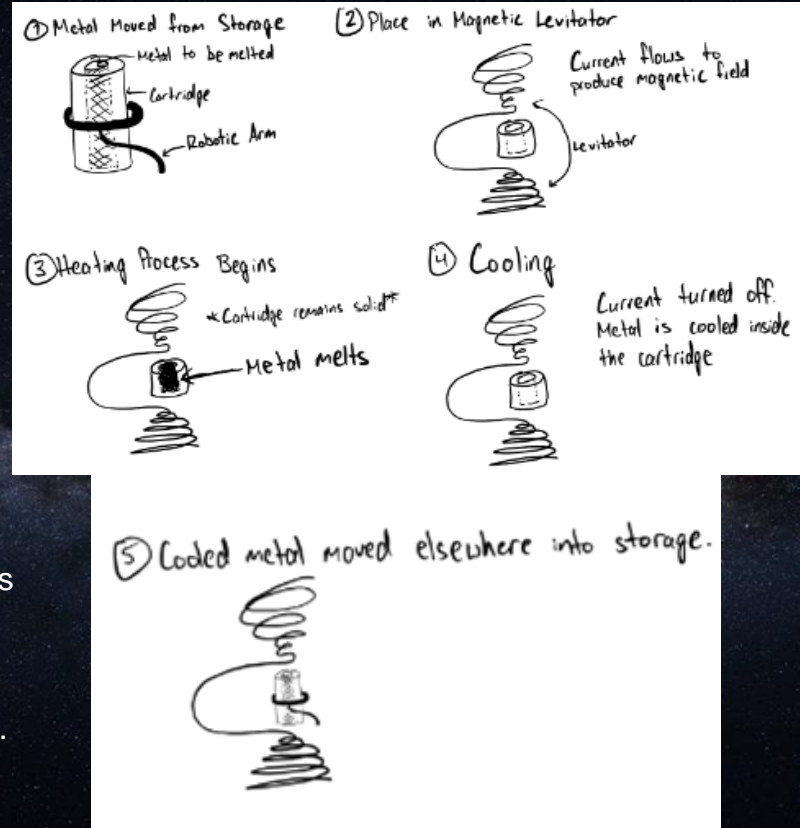 ① Metal Moved from Storage
Metal to be melted
Cartridge
Robotic Arm
② Place in Magnetic Levitator
Current flows to
produce magnetic field
Levitator
③ Heating Process Begins
*Cartridge remains solid*
Metal melts
④ Cooling
Current turned off.
Metal is cooled inside
the cartridge
⑤ Cooled metal moved elsewhere into storage.
s
.